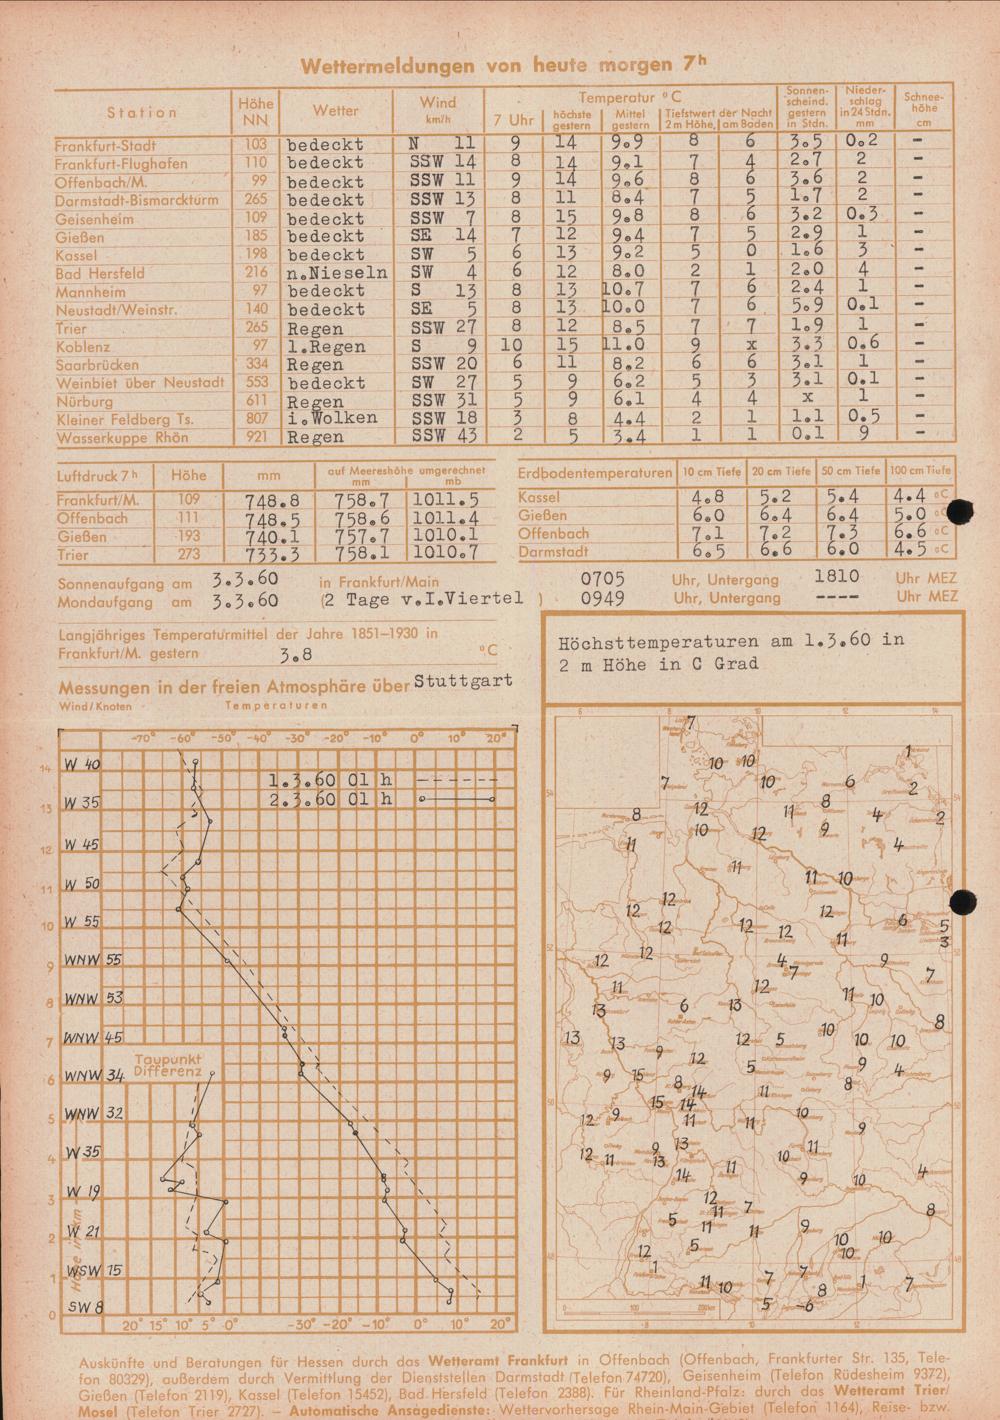 Wettermeldungen von heute morgen 7h
Station Höhe NN Wetter Wind km/h Temperatur °C Sonnen-scheind. gestern in Stdn. Nieder-schlag in 24 Stdn. mm Schnee-höhe cm
7 Uhr höchste gestern Mittel gestern Tiefstwert der Nacht 2 m Höhe, am Boden
Frankfurt-Stadt 103 bedeckt N 11 9 14 9.9 8 6 3.5 0.2 -
Frankfurt-Flughafen 110 bedeckt SSW 14 8 14 9.1 7 4 2.7 2 -
Offenbach/M. 99 bedeckt SSW 11 9 14 9.6 8 6 3.6 2 -
Darmstadt-Bismarckturm 265 bedeckt SSW 13 8 11 8.4 7 5 1.7 2 -
Geisenheim 109 bedeckt SSW 7 8 15 9.8 8 6 3.2 0.3 -
Gießen 185 bedeckt SE 14 7 12 9.4 7 5 2.9 1 -
Kassel 198 bedeckt SW 5 6 13 9.2 5 0 1.6 3 -
Bad Hersfeld 216 n.Nieseln SW 4 6 12 8.0 2 1 2.0 4 -
Mannheim 97 bedeckt S 13 8 13 10.7 7 6 2.4 1 -
Neustadt/Weinstr. 140 bedeckt SE 5 8 13 10.0 7 6 5.9 0.1 -
Trier 265 Regen SSW 27 8 12 8.5 7 7 1.9 1 -
Koblenz 97 l.Regen S 9 10 15 11.0 9 x 3.3 0.6 -
Saarbrücken 334 Regen SSW 20 6 11 8.2 6 6 3.1 1 -
Weinbiet über Neustadt 553 bedeckt SW 27 5 9 6.2 5 3 3.1 0.1 -
Nürburg 611 Regen SSW 31 5 9 6.1 4 4 x 1 -
Kleiner Feldberg Ts. 807 i.Wolken SSW 18 3 8 4.4 2 1 1.1 0.5 -
Wasserkuppe Rhön 921 Regen SSW 43 2 5 3.4 1 1 0.1 9 -
Luftdruck 7h Höhe mm auf Meereshöhe umgerechnet mm mb
Frankfurt/M. 109 748.8 758.7 1011.5
Offenbach 111 748.5 758.6 1011.4
Gießen 193 740.1 757.7 1010.1
Trier 273 733.3 758.1 1010.7
Erdbodentemperaturen 10 cm Tiefe 20 cm Tiefe 50 cm Tiefe 100 cm Tiefe
Kassel 4.8 5.2 5.4 4.4 °C
Gießen 6.0 6.4 6.4 5.0 °C
Offenbach 7.1 7.2 7.3 6.6 °C
Darmstadt 6.5 6.6 6.0 4.5 °C
Sonnenaufgang am 3.3.60 in Frankfurt/Main 0705 Uhr, Untergang 1810 Uhr MEZ
Mondaufgang am 3.3.60 (2 Tage v.I.Viertel ) 0949 Uhr, Untergang ---- Uhr MEZ
Langjähriges Temperaturmittel der Jahre 1851-1930 in
Frankfurt/M. gestern 3.8 °C
Messungen in der freien Atmosphäre über Stuttgart
Wind/Knoten Temperaturen
-70° -60° -50° -40° -30° -20° -10° 0° 10° 20°
1.3.60 01 h
2.3.60 01 h
14 W 40
13 W 35
12 W 45
11 W 50
10 W 55
9 WNW 55
8 WNW 53
7 WNW 45
Taupunkt
Differenz
6 WNW 34
5 WNW 32
4 W 35
3 W 19
2 W 21
1 WSW 15
0 SW 8
Höhe in km
20° 15° 10° 5° 0° -30° -20° -10° 0° 10° 20°
Höchsttemperaturen am 1.3.60 in
2 m Höhe in C Grad
6 8 10 12 14
7
10 10 1
7 10 6 2
8 12 11 8 4 2
11 10 12 9 4
11 11 10
12 12 12 6 5
12 12 12 11 3
12 12 4 7 9 7
11 12 11 10
13 6 13 8
13 13 12 5 10 10 10
9 12 5 9 4
9 15 8 14 11 8
15 14 10
12 9 11 11 9
12 11 9 13 13 10 11
14 11 9 10 4
12 7 8
5 11 11 11 9 10 10
12 5 10
1 7 7 1 7
11 10 8
5 -6
0 100 200km
Auskünfte und Beratungen für Hessen durch das Wetteramt Frankfurt in Offenbach (Offenbach, Frankfurter Str. 135, Tele-
fon 80329), außerdem durch Vermittlung der Dienststellen Darmstadt (Telefon 74720), Geisenheim (Telefon Rüdesheim 9372),
Gießen (Telefon 2119), Kassel (Telefon 15452), Bad Hersfeld (Telefon 2388). Für Rheinland-Pfalz: durch das Wetteramt Trier/
Mosel (Telefon Trier 2727). – Automatische Ansagedienste: Wettervorhersage Rhein-Main-Gebiet (Telefon 1164), Reise- bzw.